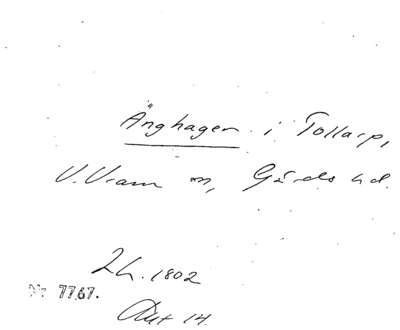 Änghagen i Tollarp,
V. Vram sn, Gärds hd.
2h. 1802
Nr 7767.
Akt 14.